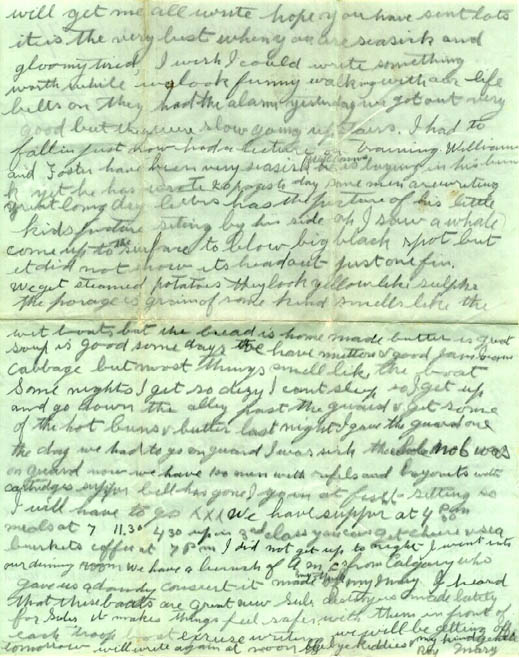 will get me all write hope you have sent lots
it is the very best when you are seasick and
gloomy tired, I wish I could write something
worth while we look funny walking with our life
belts on they had the alarm yesterday we got out very
good but they were slow going up stairs. I had to
fall in just now had a lecture on training. Williams
and Foster have been very seasick he is laying in his bunk
yet he has wrote 20 posts to day some men are writing
great long day has the picture of his little
kids picture siting by his side oh I saw a whale
come up to the surface to blow big black spot but
it did not show its head out just one fin.
We get steamed potatoes they look yellow like sulphr
the porage is grain of some kind smells like the
wet boats but the bread is home made butter is great
soup is good some days we have mutton & good jam beans
cabbage but most things smell like the boat
Some nights I get so dizy I cant sleep so I get up
and go down the alley past the guard & get some
of the hot buns & butter last night I gave the guard one
the day we had to go on guard I was sick the No 6 was
on guard now we have 100 men with rifels and bayonets with
cartridges supper bell has gone I go in at first sitting so
I will have to go XXX We have supper at 4 30 pm
meals at 7 11.30 4.30 up in 3rd class you can get chees & sea
buiskets coffee at 7 8 pm I did not get up to night I went into
our dinning room we have a bunch of from Calgary who
gave us a dandy consert it made me my Mary. I heard
that these boats are great new Subs chassers made lately
for Subs it makes things feel safer with them in front of
each troop boat excuse writing we will be getting off
tomorrow will write again at noon bye kiddies my kind
Roy Mary